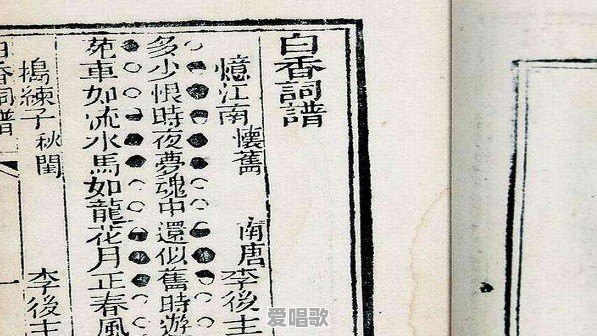 白香詞譜
憶江南 懷舊 南唐 李後主
多少恨時夜夢魂中還似舊時遊
苑車如流水馬如龍花月正春風
搗練子 秋閨 李後主
白香詞譜 一
爱唱歌